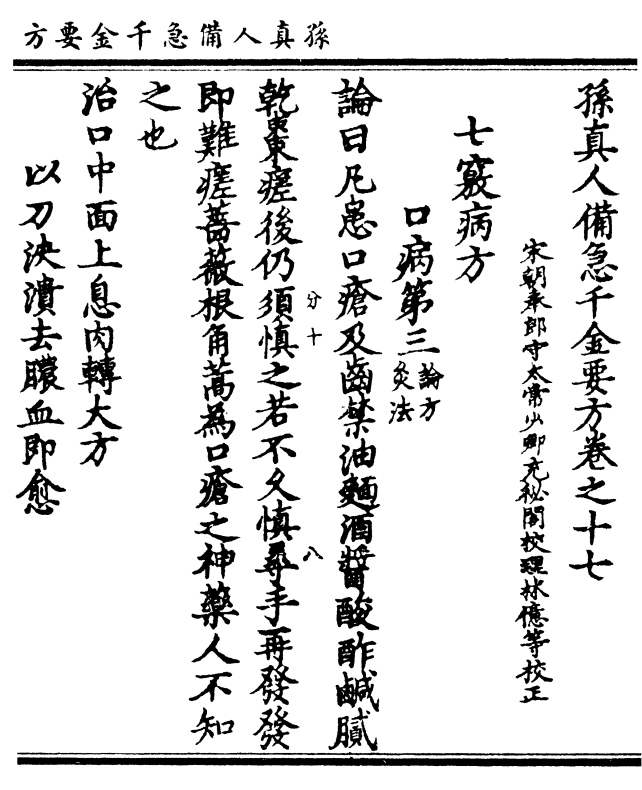 孫真人備急千金要方
孫真人備急千金要方卷之十七
宋朝奉郎守太常少卿充秘閣校理林億等校正
七竅病方
口病第三論方灸法
論曰凡患口瘡及齒禁油麵酒醬酸酢鹹膩
分十
八
乾棗瘥後仍須慎之若不久慎尋手再發發
即難瘥薔薇根角蒿為口瘡之神藥人不知
之也
治口中面上息肉轉大方
以刀決潰去膿血即愈